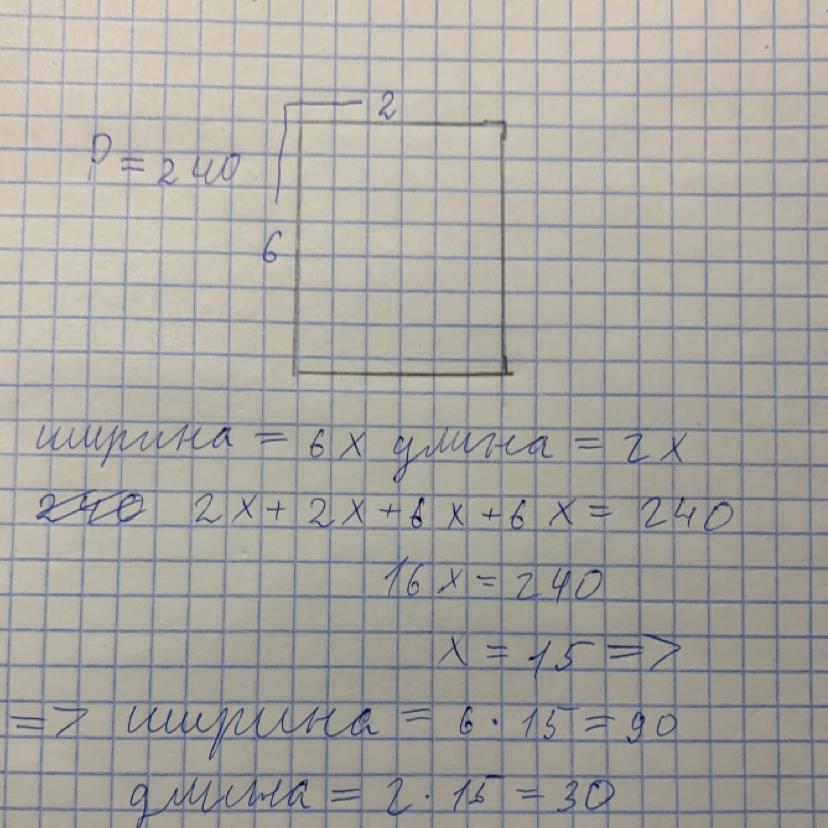 2
P = 240
6
ширина = 6x длина = 2x
240 2x + 2x + 6x + 6x = 240
16x = 240
x = 15 =>
=> ширина = 6 · 15 = 90
длина = 2 · 15 = 30